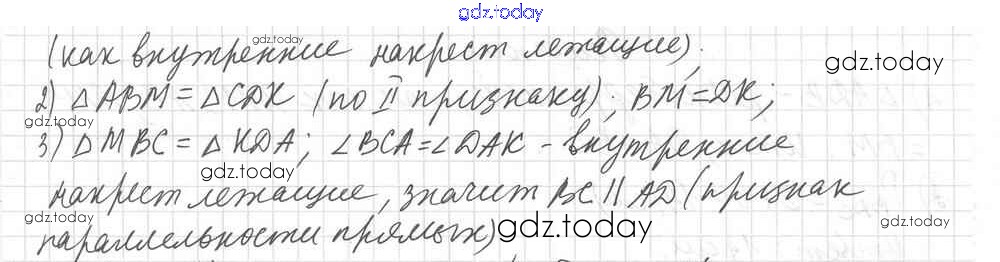 gdz.today
(как внутренние накрест лежащие).
gdz.today
gdz.today
2) △ABM = △CDK (по II признаку); BM = DK;
gdz.today
gdz.today
3) △MBC = △KDA; ∠BCA = ∠DAK - внутренние
gdz.today
накрест лежащие, значит BC || AD (признак
gdz.today
gdz.today
параллельности прямых)
gdz.today